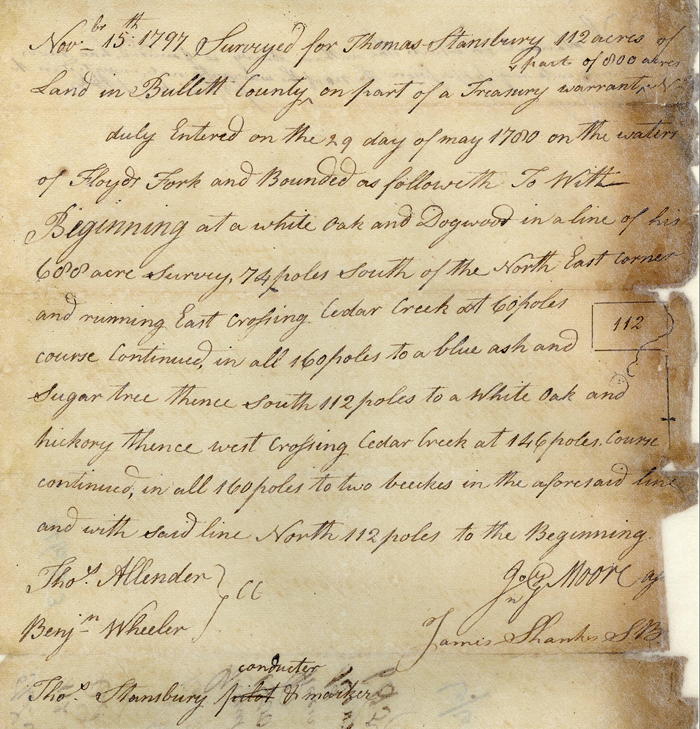 Novbr 15th 1797 Surveyed for Thomas Stansbury 112 acres of
& part of 800 acres
Land in Bullett County ^ on part of a Treasury warrant
duly Entered on the 29 day of may 1780 on the waters
of Floyds Fork and Bounded as followeth To Witt
Beginning at a white Oak and Dogwood in a line of his
688 acre Survey, 74 poles South of the North East corner
and running East Crossing Cedar Creek at 60 poles
112
course Continued, in all 160 poles to a blue ash and
Sugar tree thence South 112 poles to a White Oak and
hickory thence west Crossing Cedar Creek at 146 poles. Course
continued, in all 160 poles to two beeches in the aforesaid line
and with said line North 112 poles to the Beginning.
Thos Allender } CC
Moore
Benjn Wheeler
James Shanks SB
conducter
Thos Stansbury pilot & marker